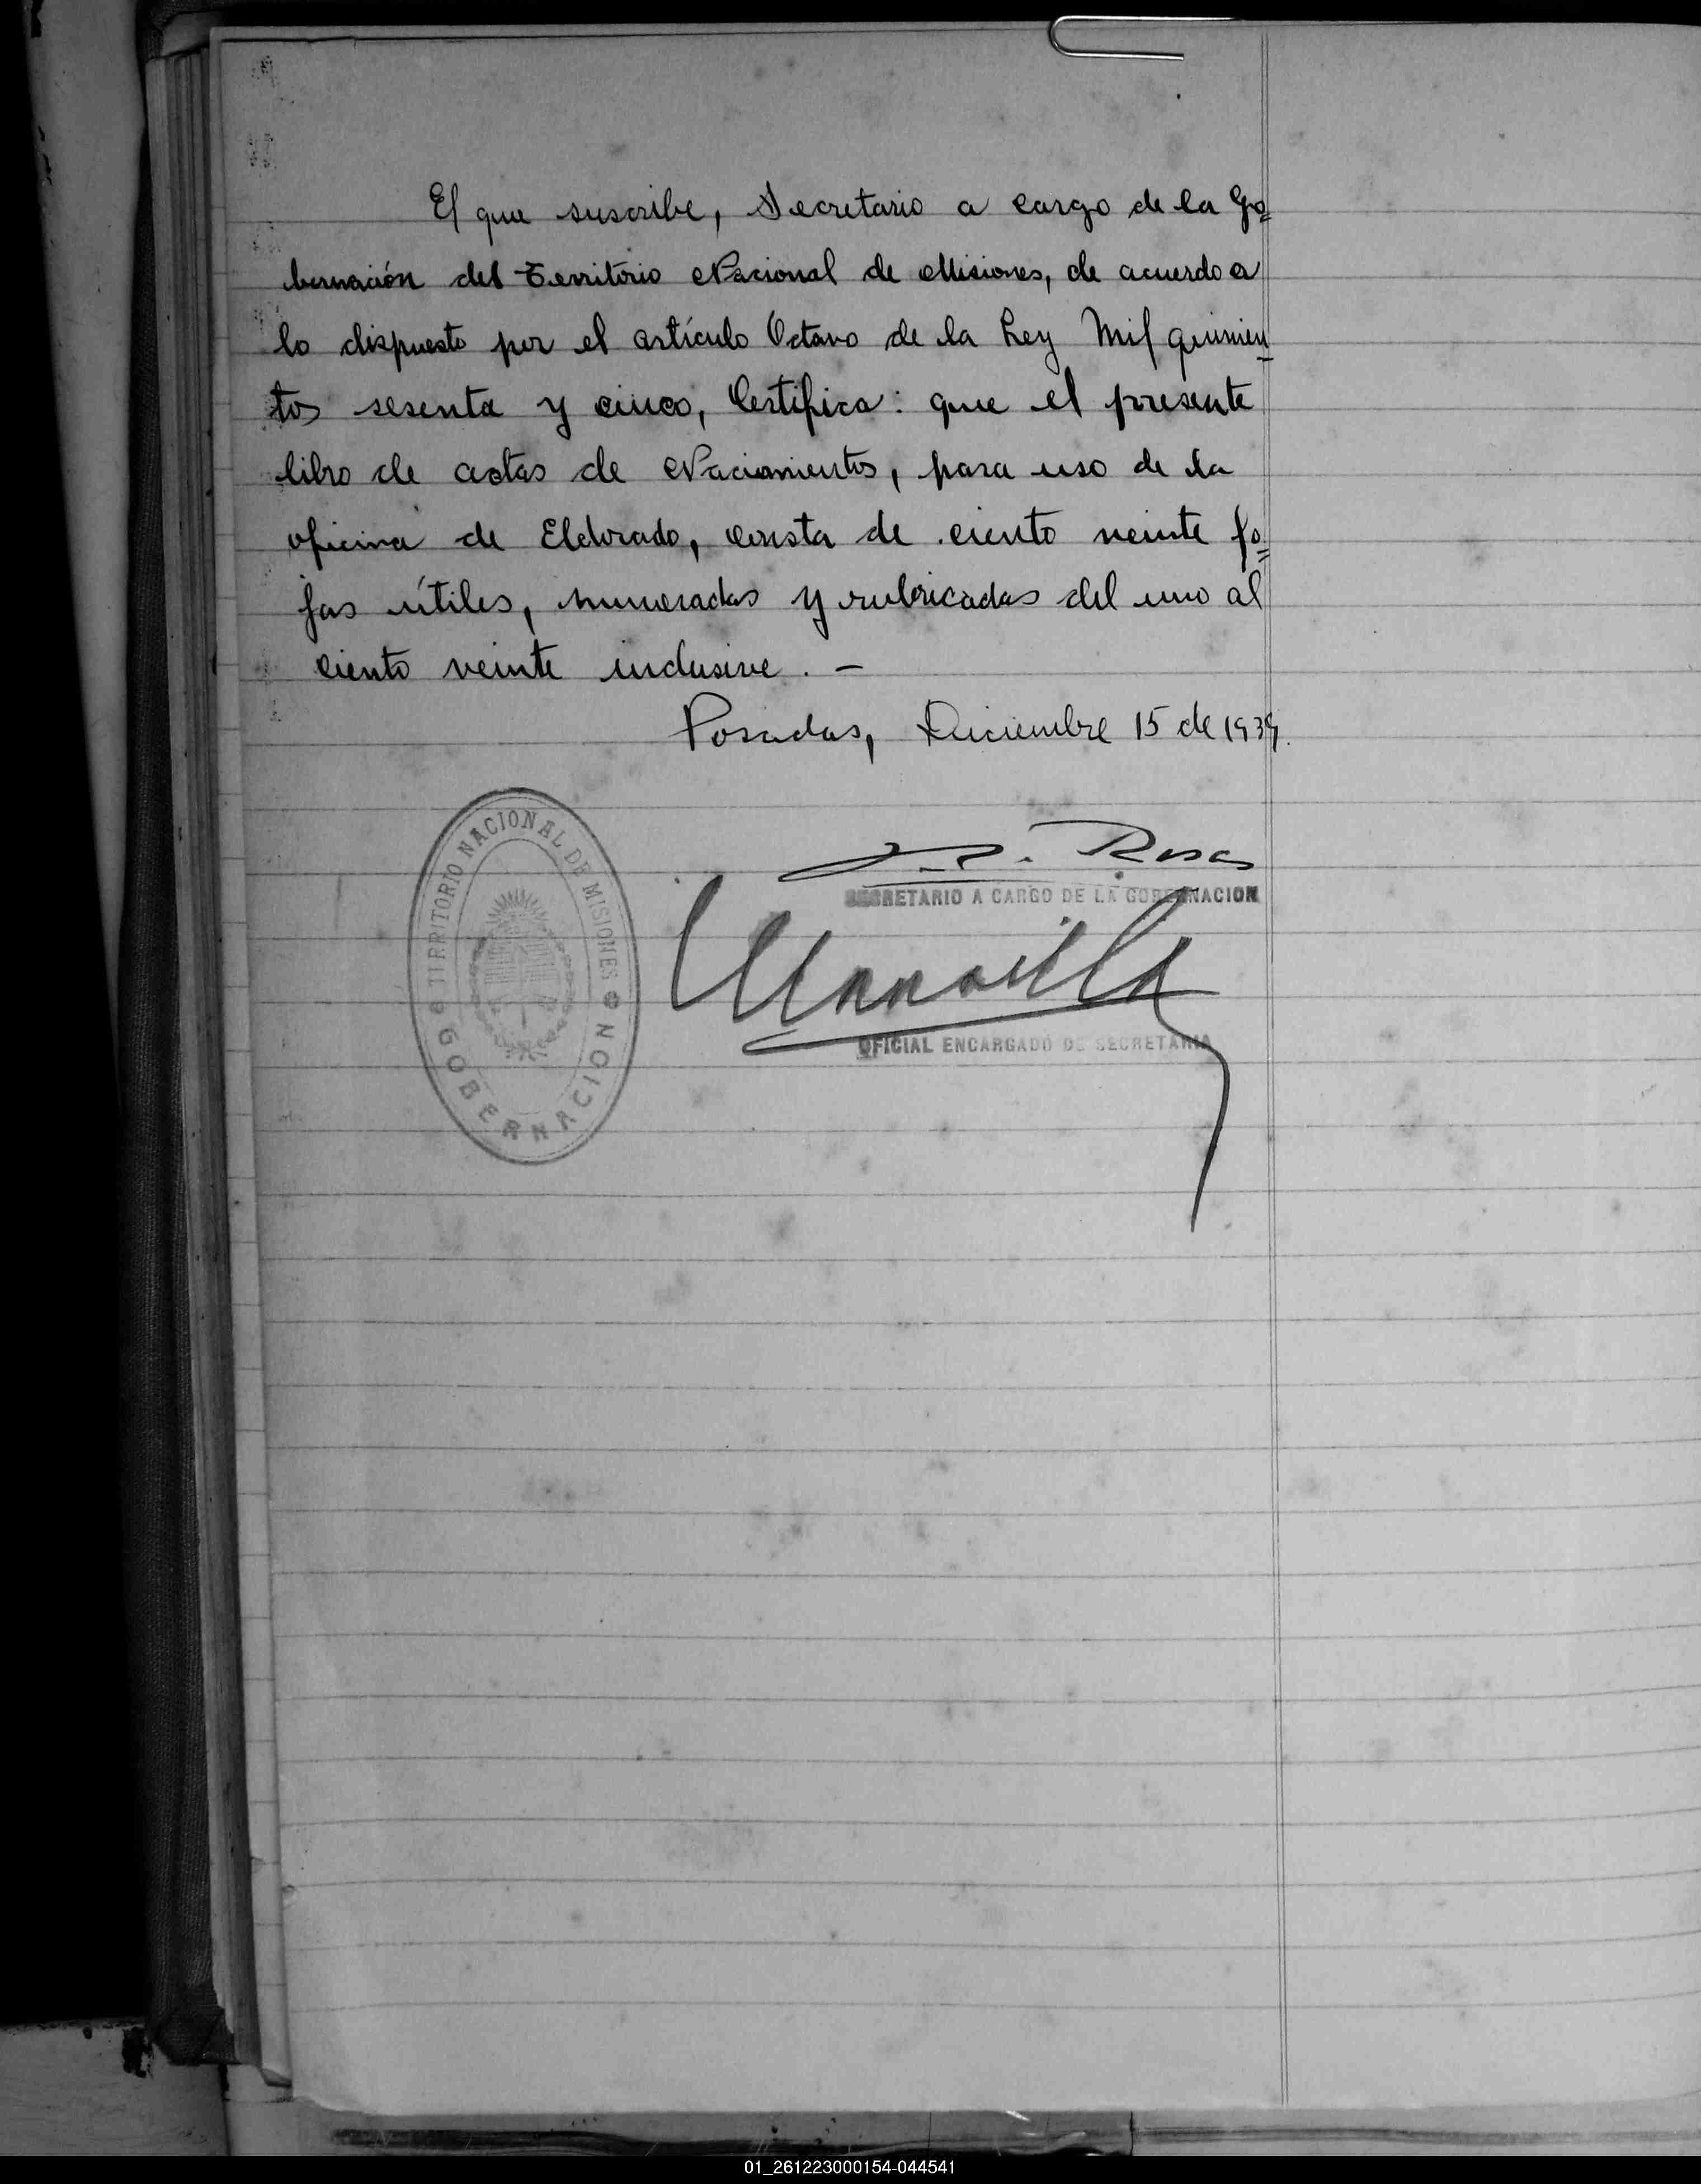 El que suscribe, Secretario a cargo de la Go=
bernación del Territorio Nacional de Misiones, de acuerdo a
lo dispuesto por el artículo Octavo de la Ley Mil quinien-
tos sesenta y cinco, Certifica: que el presente
libro de actas de Nacimientos, para uso de la
oficina de Eldorado, consta de ciento veinte fo=
jas útiles, numeradas y rubricadas del uno al
ciento veinte inclusive. —
Posadas, Diciembre 15 de 1939.
TERRITORIO NACIONAL DE MISIONES
GOBERNACION
SECRETARIO A CARGO DE LA GOBERNACION
OFICIAL ENCARGADO DE SECRETARIA
01_261223000154-044541